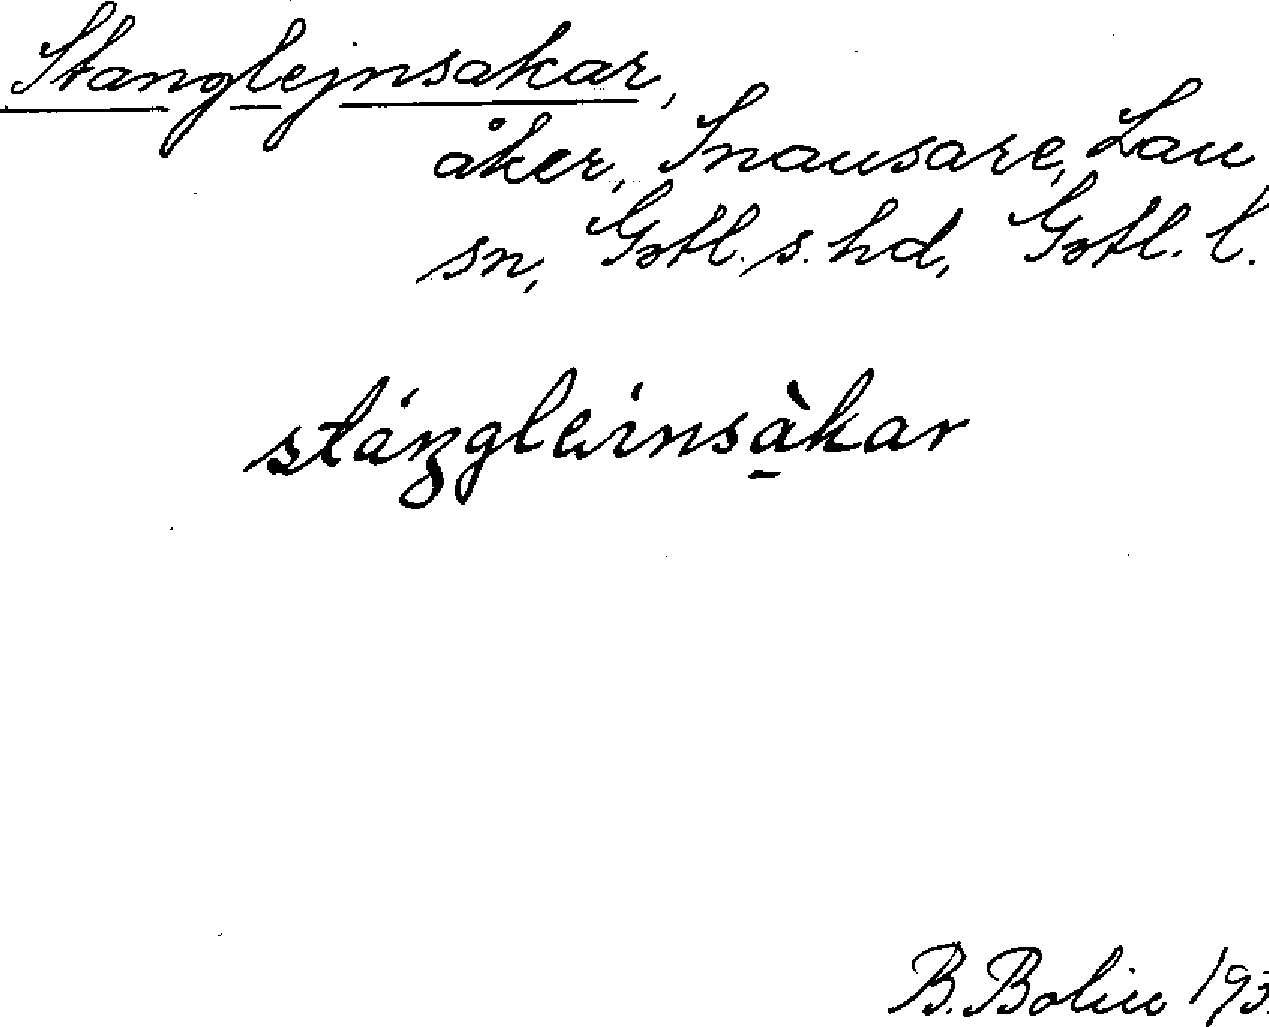 Stanglejnsakar,
åker, Snausare, Lau
sn, Gotl. s. hd, Gotl. l.
stáŋgleinsàkar
B. Bolin 193